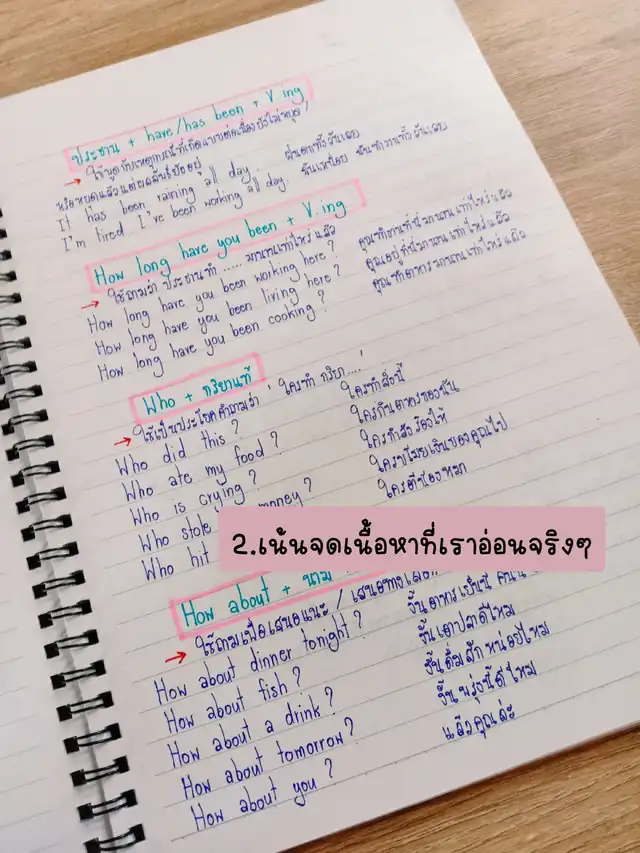 ประธาน + have/has been + V.ing
→ ใช้พูดกับเหตุการณ์ที่เกิดแบบต่อเนื่องยังไม่หยุด /
หรือหยุดแล้วแต่ผลลัพธ์ยังอยู่
It has been raining all day. ฝนตกทั้งวันเลย
I'm tired I've been working all day. ฉันเหนื่อย ฉันทำงานทั้งวันเลย
How long have you been + V.ing
→ ใช้ถามว่า ประธานทำ ..... มานานเท่าไหร่ แล้ว
How long have you been working here? คุณทำงานที่นี่มานานเท่าไหร่แล้ว
How long have you been living here? คุณอยู่ที่นี่มานานเท่าไหร่แล้ว
How long have you been cooking? คุณทำอาหารมานานเท่าไหร่แล้ว
Who + กริยาแท้
→ ใช้เป็นประโยคคำถามว่า ' ใครทำ กริยา ....'
Who did this? ใครทำสิ่งนี้
Who ate my food? ใครกินอาหารของฉัน
Who is crying? ใครกำลังร้องไห้
Who stole money? ใครขโมยเงินของคุณไป
Who hit ใครตีน้องหมา
2.เน้นจดเนื้อหาที่เราอ่อนจริงๆ
How about + นาม
→ ใช้ถามเพื่อเสนอแนะ / เสนอทางเลือก
How about dinner tonight? งั้นอาหารเย็นนี้
How about fish? งั้นเอาปลาดีไหม
How about a drink? งั้นดื่มสักหน่อยไหม
How about tomorrow? งั้นพรุ่งนี้ดีไหม
How about you? แล้วคุณล่ะ